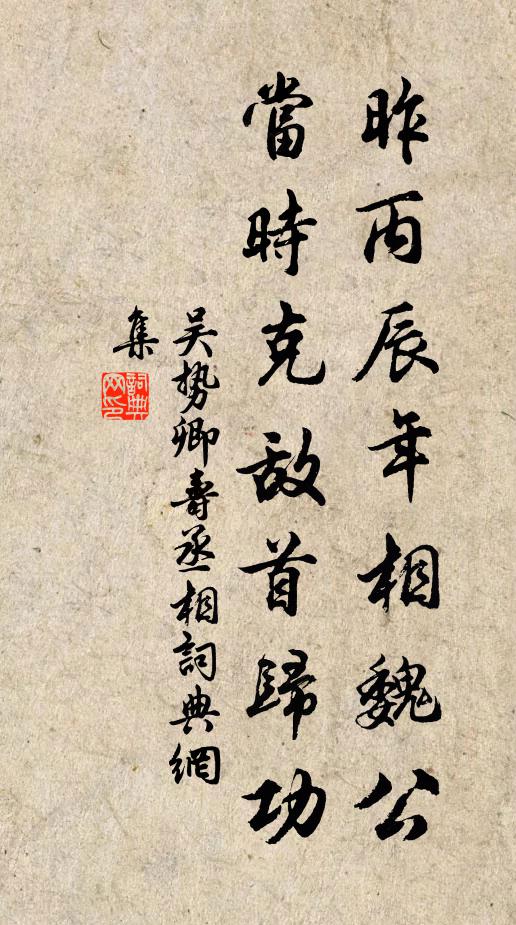 昨丙辰年相魏公
當時克敵首歸功
吴勢卿壽丞相詞典網
集
詞典網印